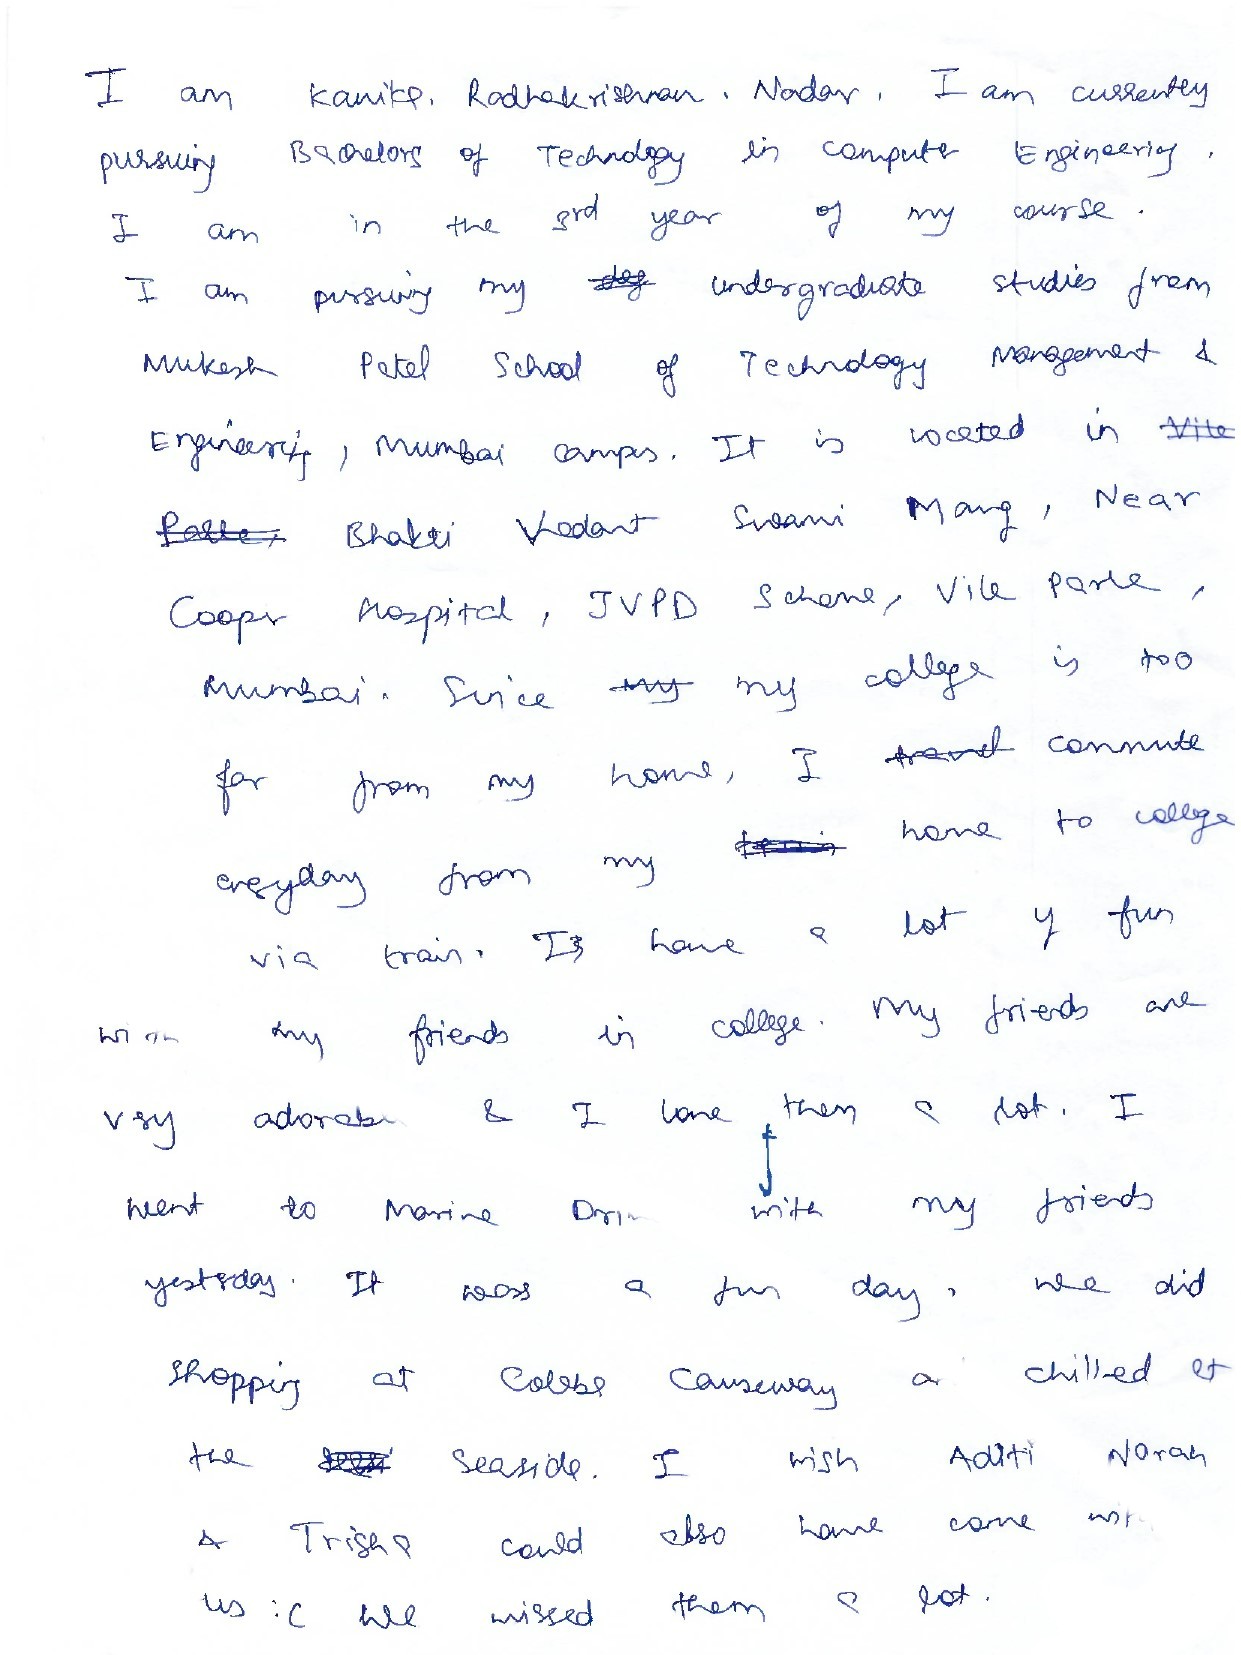 I am Kanika. Radhakrishnan. Nadar. I am currently
pursuing Bachelors of Technology in computer Engineering.
I am in the 3rd year of my course.
I am pursuing my undergraduate studies from
Mukesh Patel School of Technology Management &
Engineering, Mumbai campus. It is located in Vile
Parle, Bhakti Vedant Swami Marg, Near
Cooper Hospital, JVPD Scheme, Vile Parle,
Mumbai. Since my my college is too
far from my home, I travel commute
everyday from my home to college
via train. I have a lot of fun
with my friends in college. My friends are
very adorable & I love them a lot. I
went to Marine Driv with my friends
yesterday. It was a fun day. We did
shopping at Colaba Causeway & chilled at
the seaside. I wish Aditi Norah
& Trisha could also have come wi
us :( We missed them a lot.